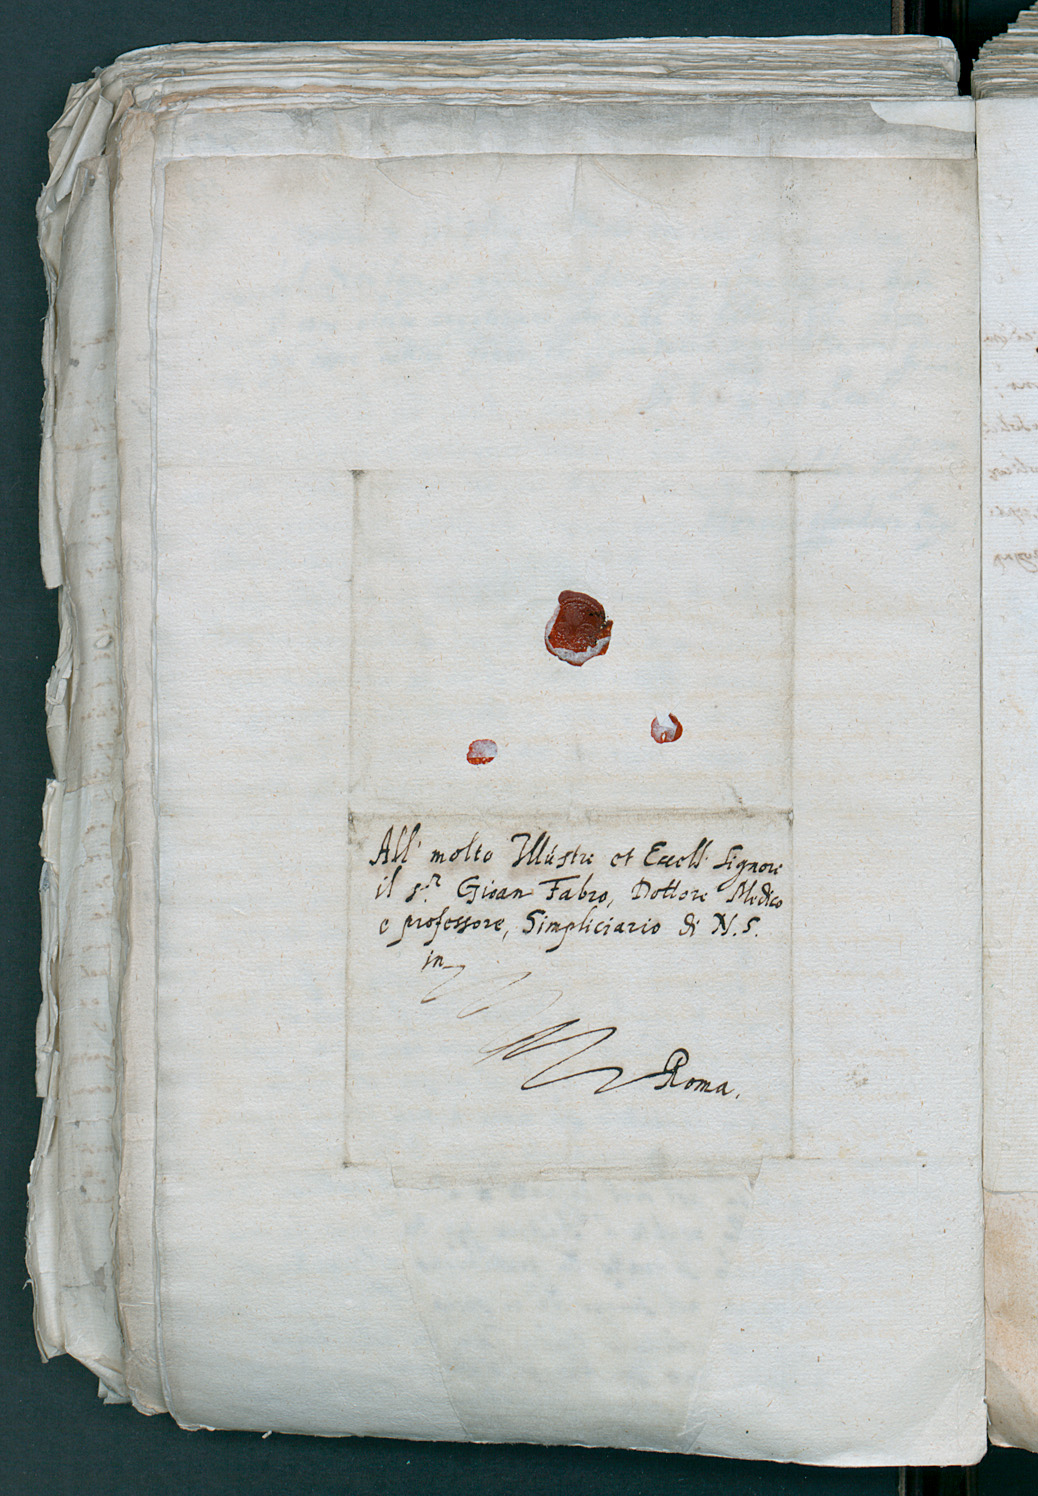 All' molto Illustre et Eccell.' Signore
il s.r Gioan Fabro, Dottore Medico
e professore, Simpliciario di N. S.
in
Roma.